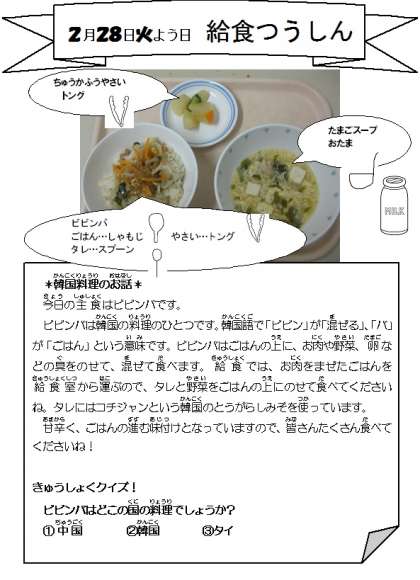 2月28日火よう日 給食つうしん
ちゅうかふうやさい
トング
たまごスープ
おたま
MILK
ビビンバ
ごはん…しゃもじ やさい…トング
タレ…スプーン
*韓国料理のお話*
今日の主食はビビンバです。
ビビンバは韓国の料理のひとつです。韓国語で「ビビン」が「混ぜる」、「バ」
が「ごはん」という意味です。ビビンバはごはんの上に、お肉や野菜、卵な
どの具をのせて、混ぜて食べます。給食では、お肉をまぜたごはんを
給食室から運ぶので、タレと野菜をごはんの上にのせて食べてください
ね。タレにはコチジャンという韓国のとうがらしみそを使っています。
甘辛く、ごはんの進む味付けとなっていますので、皆さんたくさん食べて
くださいね！
きゅうしょくクイズ！
ビビンバはどこの国の料理でしょうか？
①中国 ②韓国 ③タイ